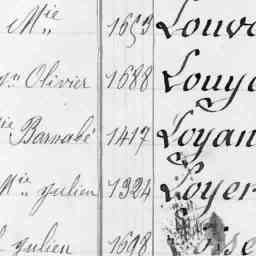 Mie 1653 Louv
Olivier 1688 Louy
Barnabé 1417 Loyan
Mie julien 1324 Loyer
julien 1698 Loise